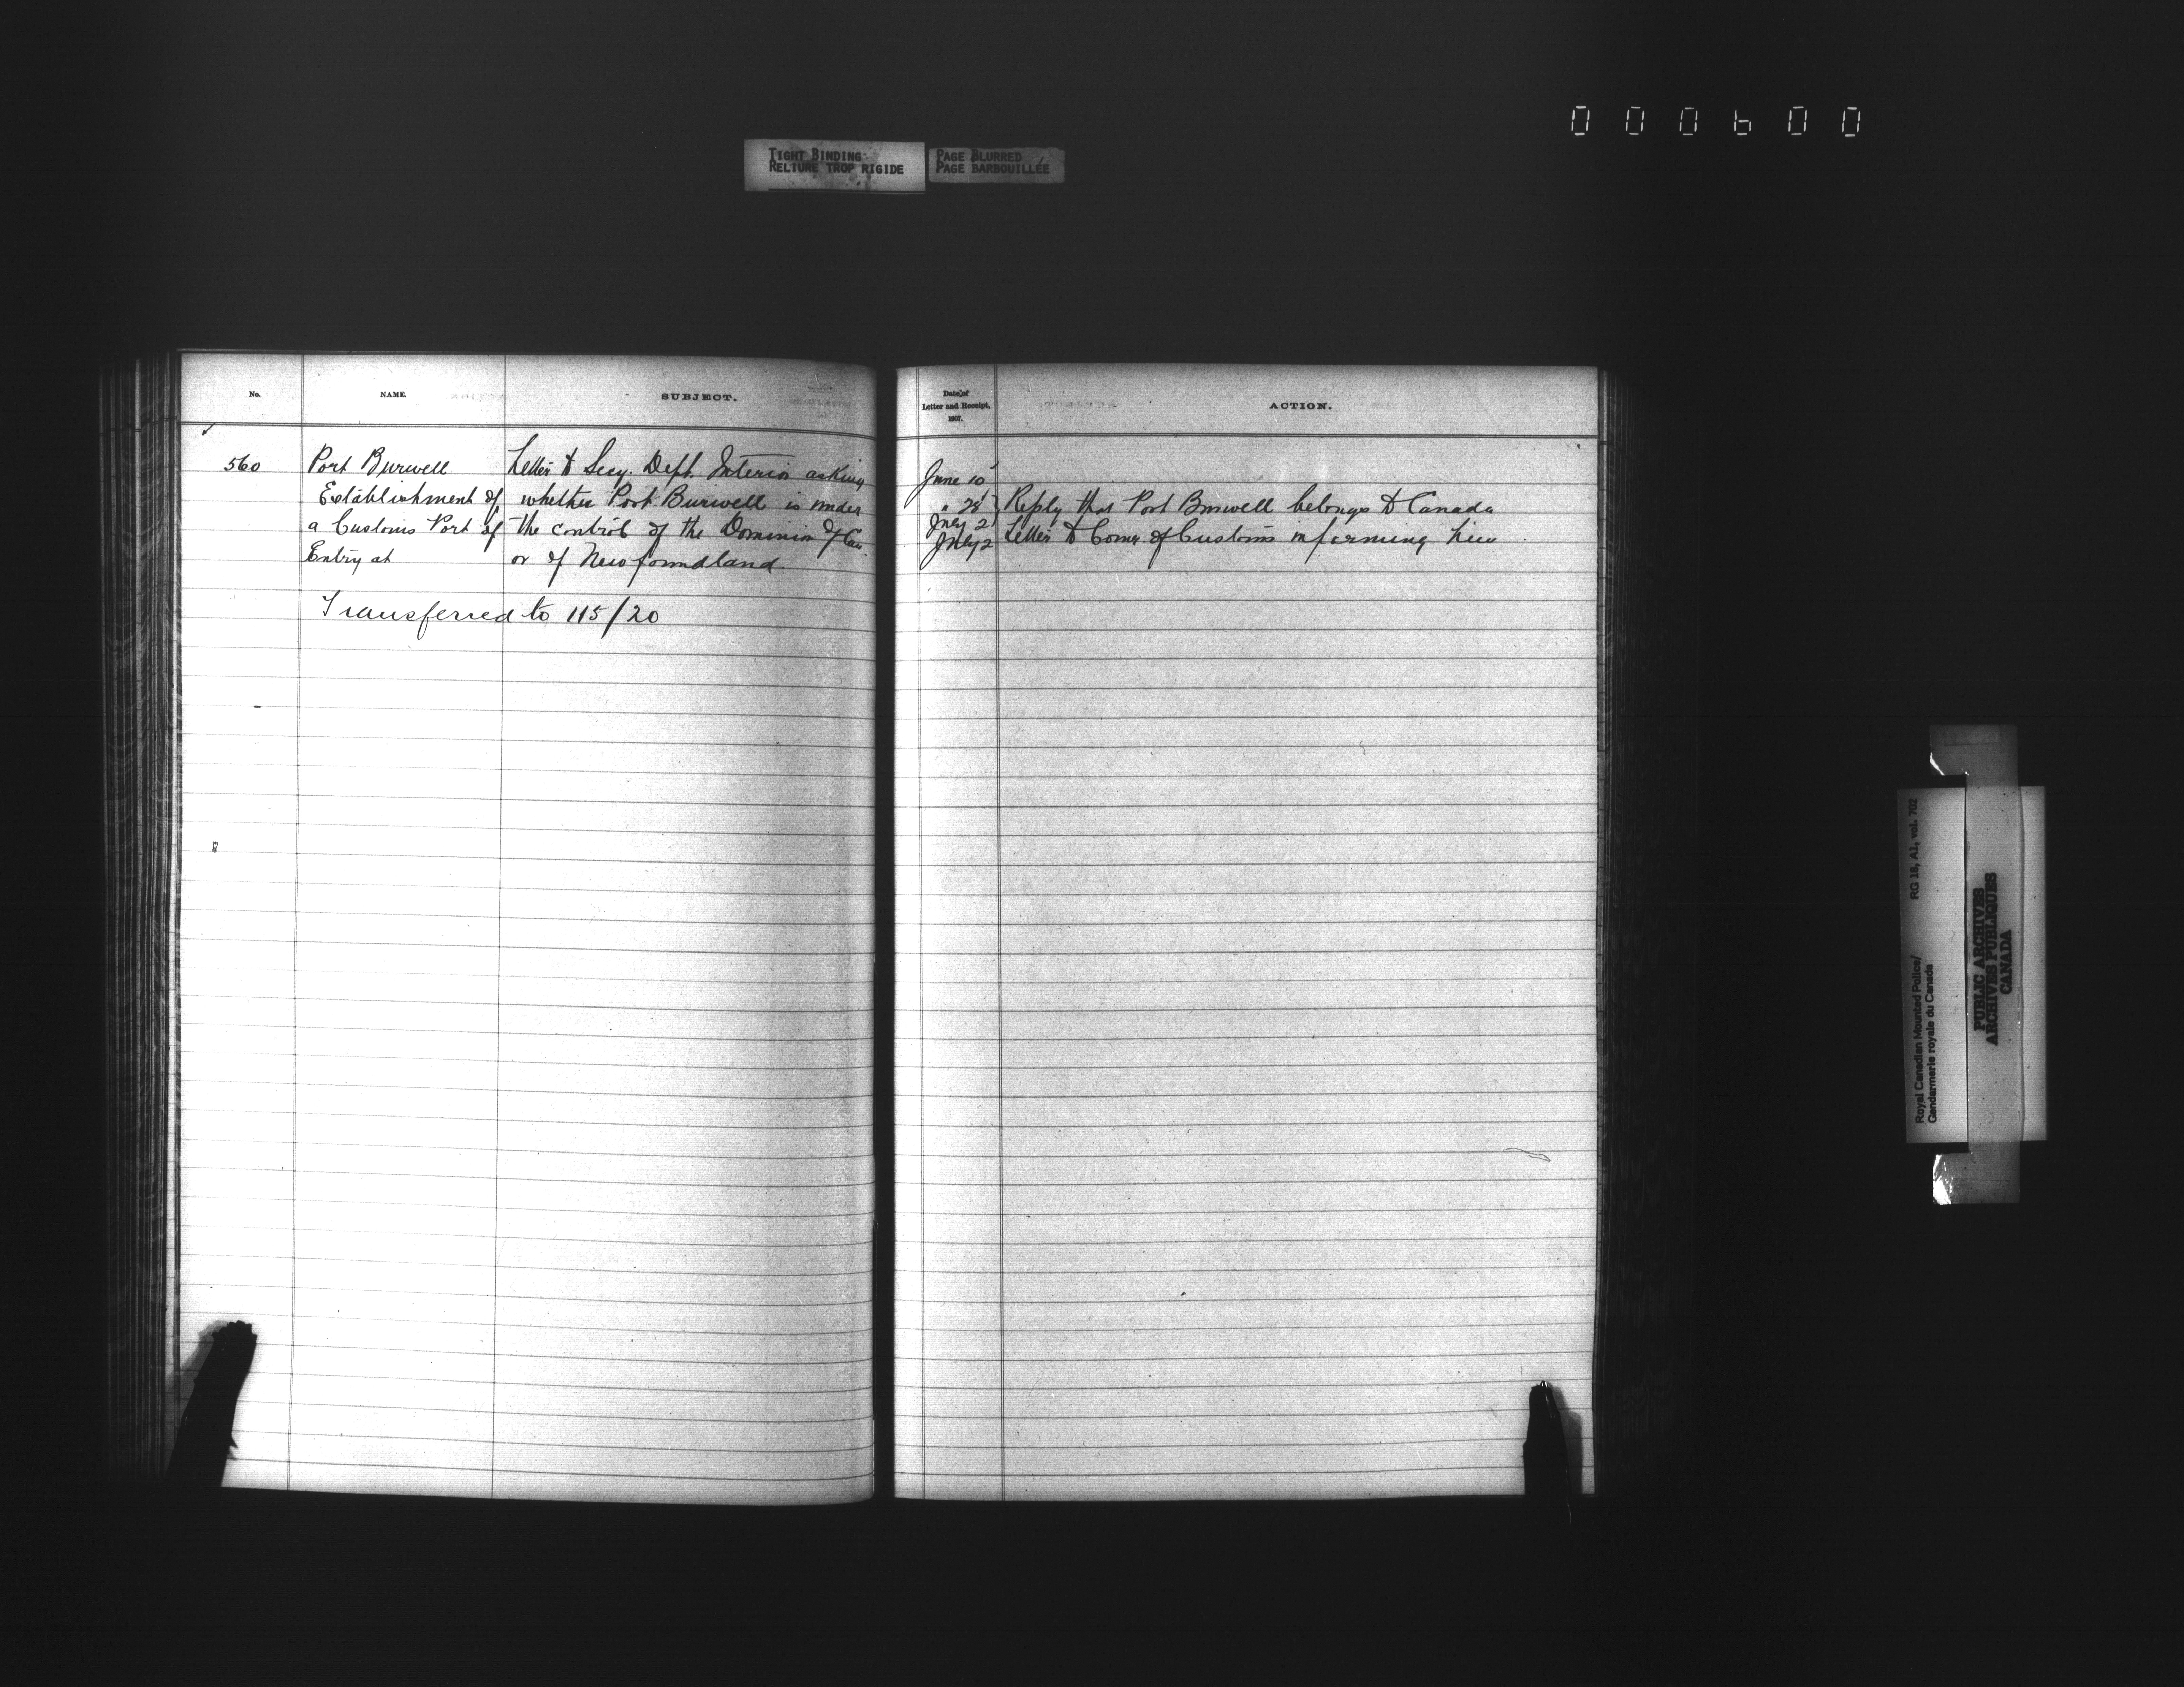 000600
TIGHT BINDING
RELIURE TROP RIGIDE
PAGE BLURRED
PAGE BARBOUILLÉE
No.
NAME.
SUBJECT.
560
Port Burwell
Establishment of
a Customs Port of
Entry at
Letter to Secy. Dept. Interior asking
whether Port Burwell is under
the control of the Dominion of Can.
or of Newfoundland.
Transferred to 115/20
Date of
Letter and Receipt,
1907.
ACTION.
June 10
" 28
July 2
Reply that Port Burwell belongs to Canada
July 2
Letter to Comr. of Customs informing him
Royal Canadian Mounted Police/
Gendarmerie royale du Canada
RG 18, A1, vol. 702
PUBLIC ARCHIVES
ARCHIVES PUBLIQUES
CANADA